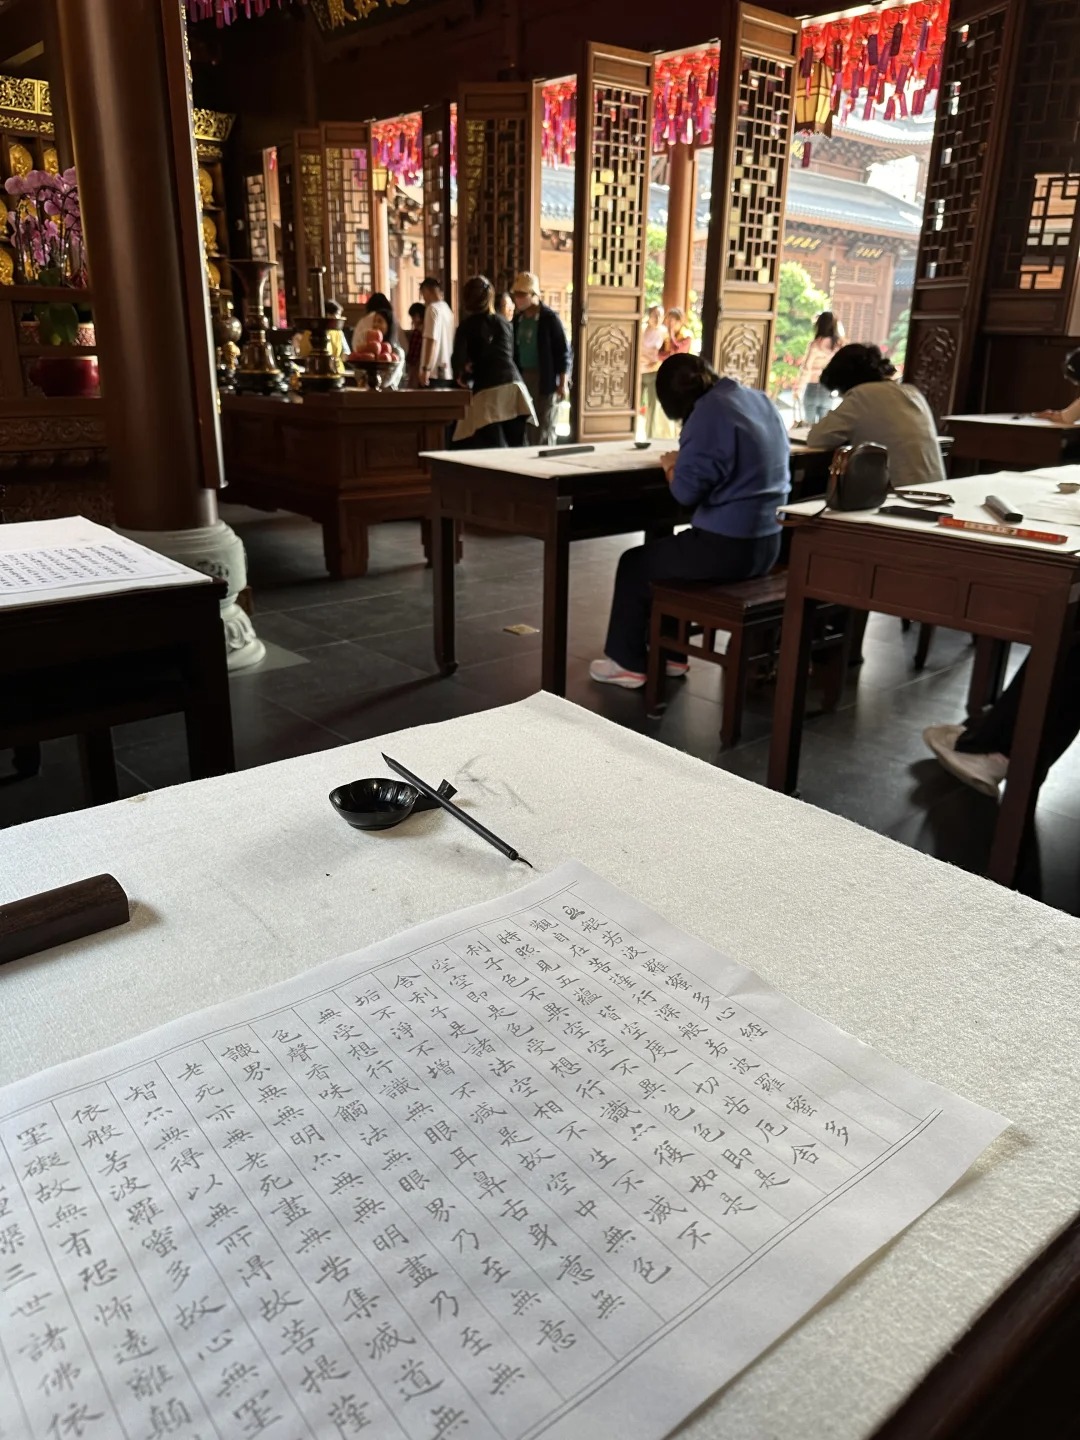 般若波羅蜜多心經
觀自在菩薩行深般若波羅蜜多
時照見五蘊皆空度一切苦厄舍
利子色不異空空不異色色即是
空空即是色受想行識亦復如是
舍利子是諸法空相不生不滅不
垢不淨不增不減是故空中無色
無受想行識無眼耳鼻舌身意無
色聲香味觸法無眼界乃至無意
識界無無明亦無無明盡乃至無
老死亦無老死盡無苦集滅道無
智亦無得以無所得故菩提薩
依般若波羅蜜多故心無罣
罣礙故無有恐怖遠離顛
槃三世諸佛依